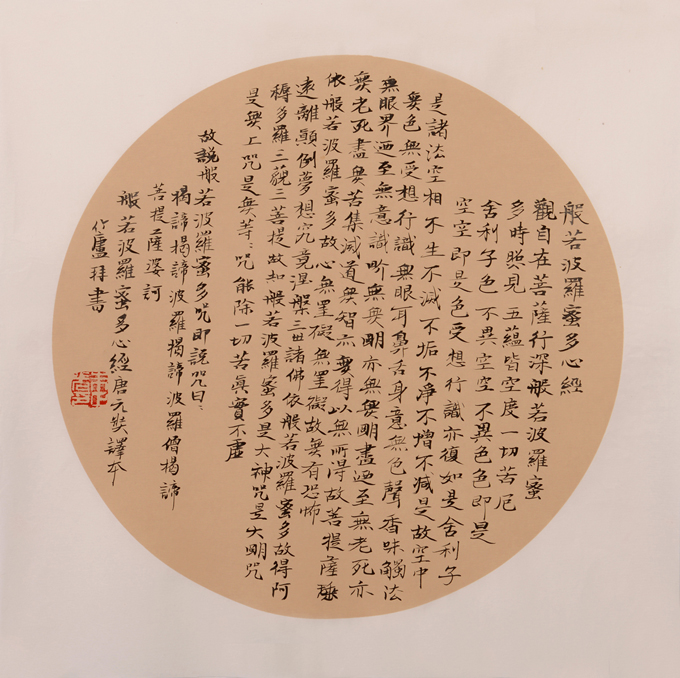 般若波羅蜜多心經
觀自在菩薩行深般若波羅蜜
多時照見五蘊皆空度一切苦厄
舍利子色不異空空不異色色即是
空空即是色受想行識亦復如是舍利子
是諸法空相不生不滅不垢不淨不增不減是故空中
無色無受想行識無眼耳鼻舌身意無色聲香味觸法
無眼界迺至無意識畍無無明亦無無明盡迺至無老死亦
無老死盡無苦集滅道無智亦無得以無所得故菩提薩埵
依般若波羅蜜多故心無罣礙無罣礙故無有恐怖
遠離顛倒夢想究竟涅槃三世諸佛依般若波羅蜜多故得阿
耨多羅三藐三菩提故知般若波羅蜜多是大神咒是大明咒
是無上咒是無等:咒能除一切苦真實不虛
故說般若波羅蜜多咒即說咒曰:
揭諦揭諦波羅揭諦波羅僧揭諦
菩提薩婆訶
般若波羅蜜多心經唐元奘譯本
竹廬拜書